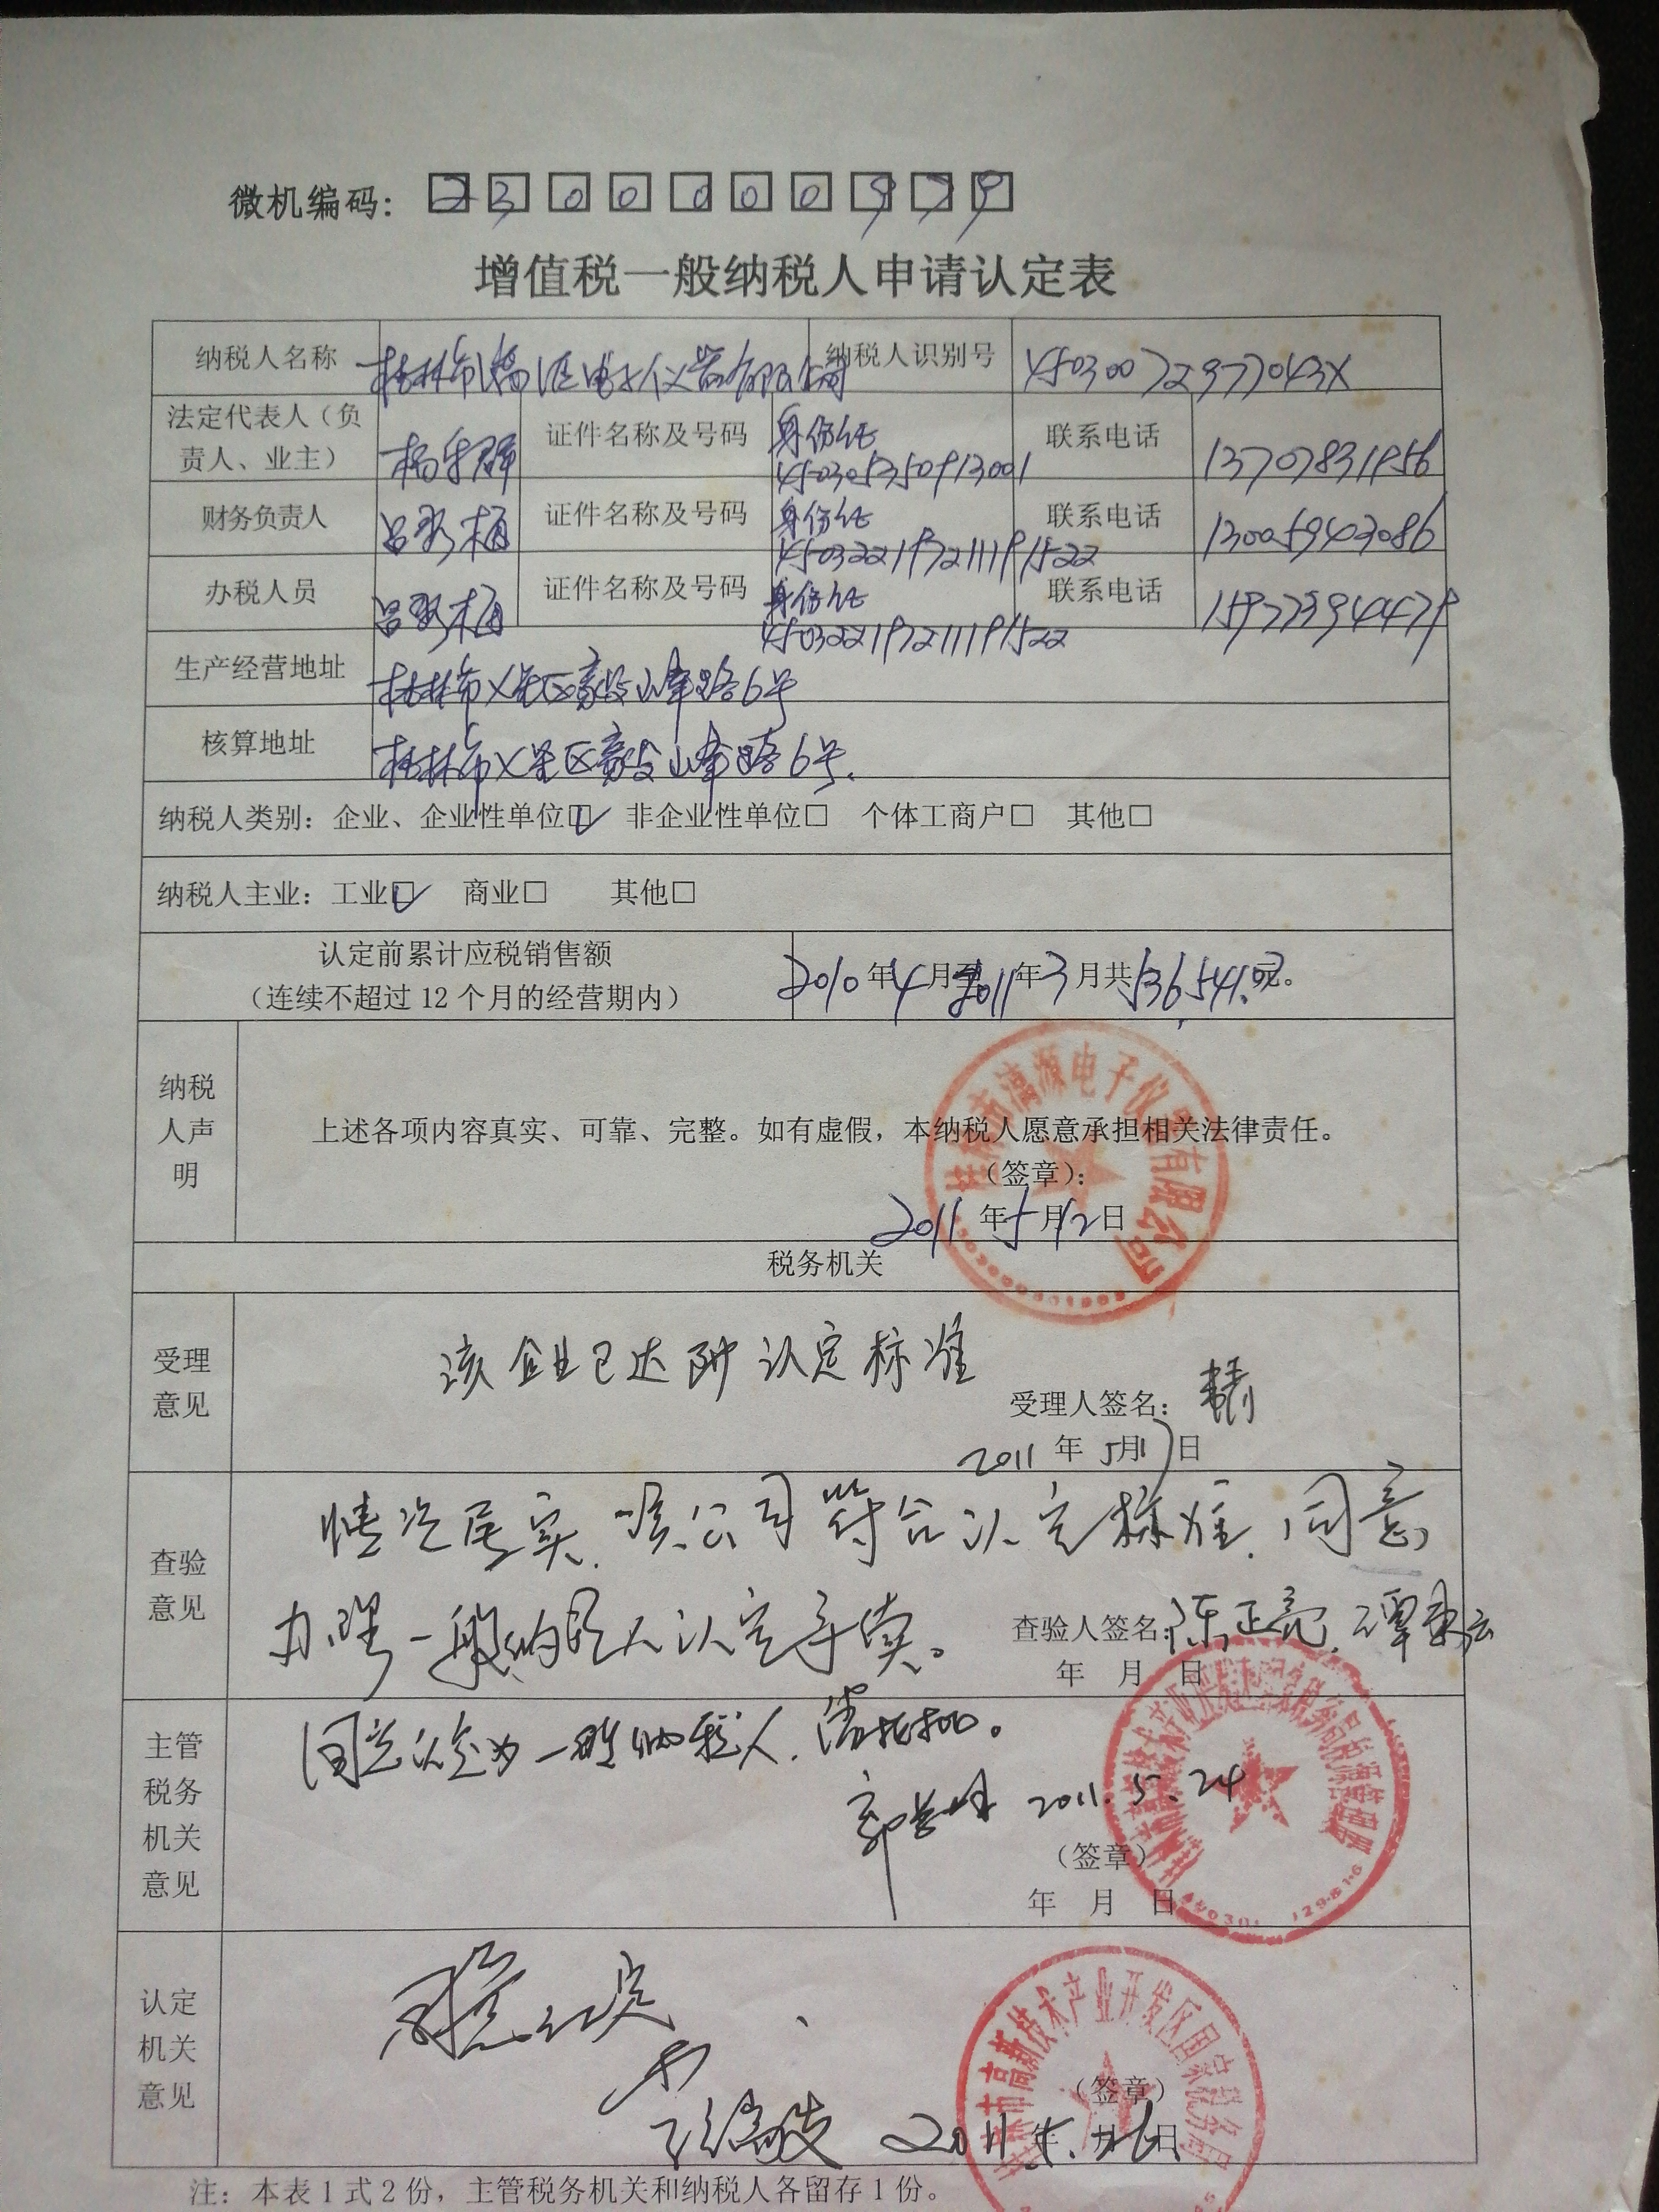 微机编码：2300000979
增值税一般纳税人申请认定表
纳税人名称 桂林市漓源电子仪器有限公司 纳税人识别号 45030072977043X
法定代表人（负责人、业主） 证件名称及号码 身份证 450305350913001 联系电话 13707831956
财务负责人 证件名称及号码 身份证 450322197211191522 联系电话 13005943086
办税人员 证件名称及号码 身份证 450322197211191522 联系电话 15977394479
生产经营地址 桂林市七星区毅峰路6号
核算地址 桂林市七星区毅峰路6号.
纳税人类别：企业、企业性单位☑ 非企业性单位□ 个体工商户□ 其他□
纳税人主业：工业☑ 商业□ 其他□
认定前累计应税销售额
（连续不超过 12 个月的经营期内） 2010年4月至2011年3月共
纳税人声明
上述各项内容真实、可靠、完整。如有虚假，本纳税人愿意承担相关法律责任。
（签章）：
2011年5月12日
桂林市漓源电子仪器有限公司
税务机关
受理意见
该企业已达到认定标准
受理人签名：
2011年5月17日
查验意见
情况属实，该公司符合认定标准，同意
办理一般纳税人认定手续。 查验人签名：陈正亮
年 月 日
主管税务机关意见
同意认定为一般纳税人，请批示。
2011.5.24
（签章）
年 月 日
认定机关意见
同意认定
（签章）
2011年5月26日
桂林市高新技术产业开发区国家税务局
注：本表 1 式 2 份，主管税务机关和纳税人各留存 1 份。